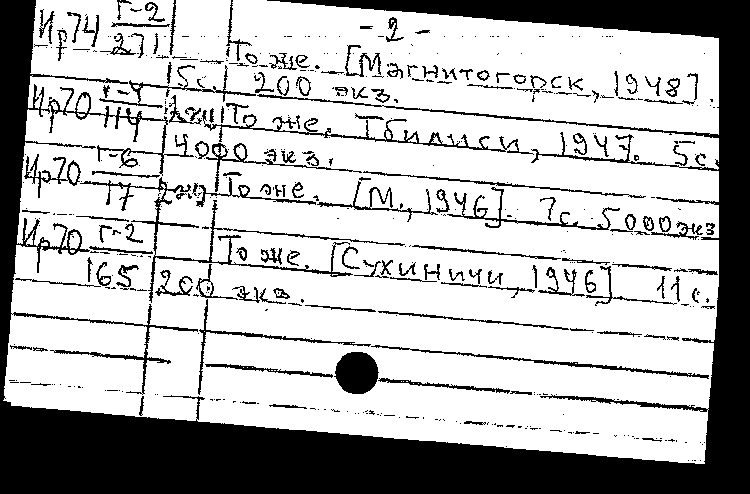 - 2 -
Ир74 г-2/271 То же. [Магнитогорск, 1948].
5с. 200 экз.
Ир70 г-4/114 2экз То же. Тбилиси, 1947. 5с.
4000 экз.
Ир70 г-6/17 2экз То же. [М., 1946]. 7с. 5000 экз
Ир70 г-2/165 То же. [Сухиничи, 1946]. 11с.
200 экз.